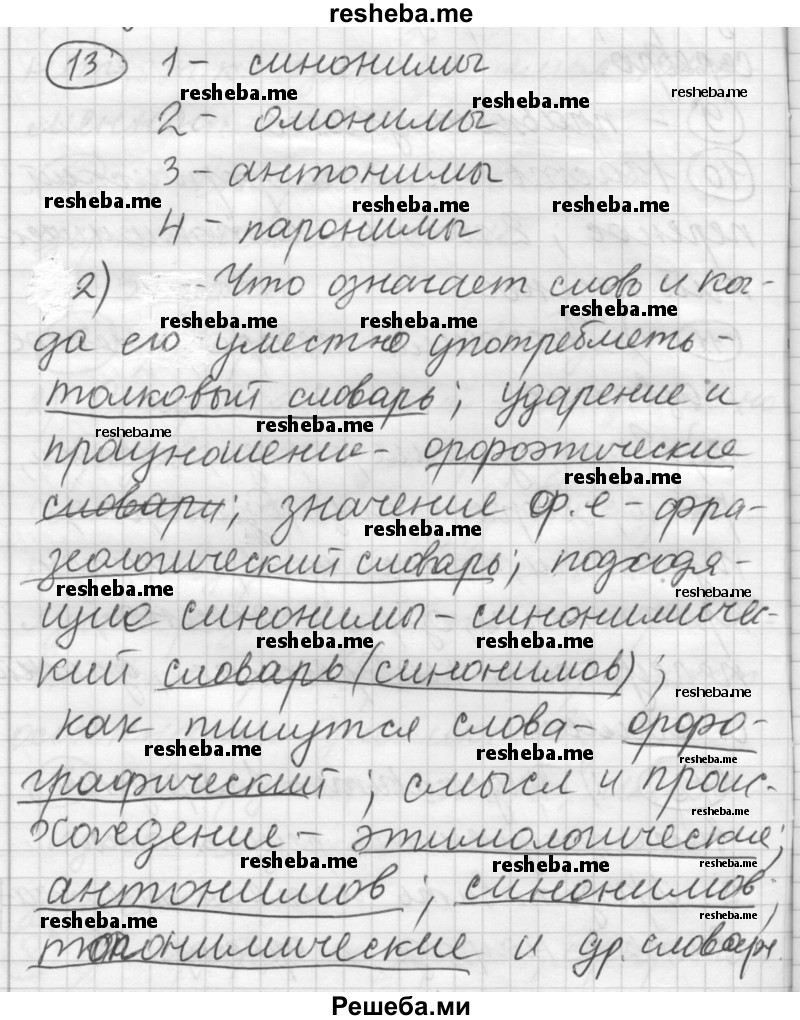 resheba.me
13 1 - синонимы
resheba.me resheba.me resheba.me
2 - омонимы
3 - антонимы
resheba.me resheba.me resheba.me
4 - паронимы
2) - Что означает слово и ког-
resheba.me resheba.me resheba.me
да его уместно употреблять -
толковый словарь; ударение и
resheba.me resheba.me
произношение - орфоэпические
resheba.me
словари; значение ф.е - фра-
resheba.me
зеологический словарь; подходя-
resheba.me resheba.me
щие синонимы - синонимичес-
resheba.me resheba.me
кий словарь (синонимов);
resheba.me
как пишутся слова - орфо-
resheba.me resheba.me resheba.me
графический; смысл и проис-
resheba.me
хождение - этимологические;
resheba.me resheba.me resheba.me
антонимов; синонимов;
resheba.me resheba.me
топонимические и др. словари
Решеба.ми